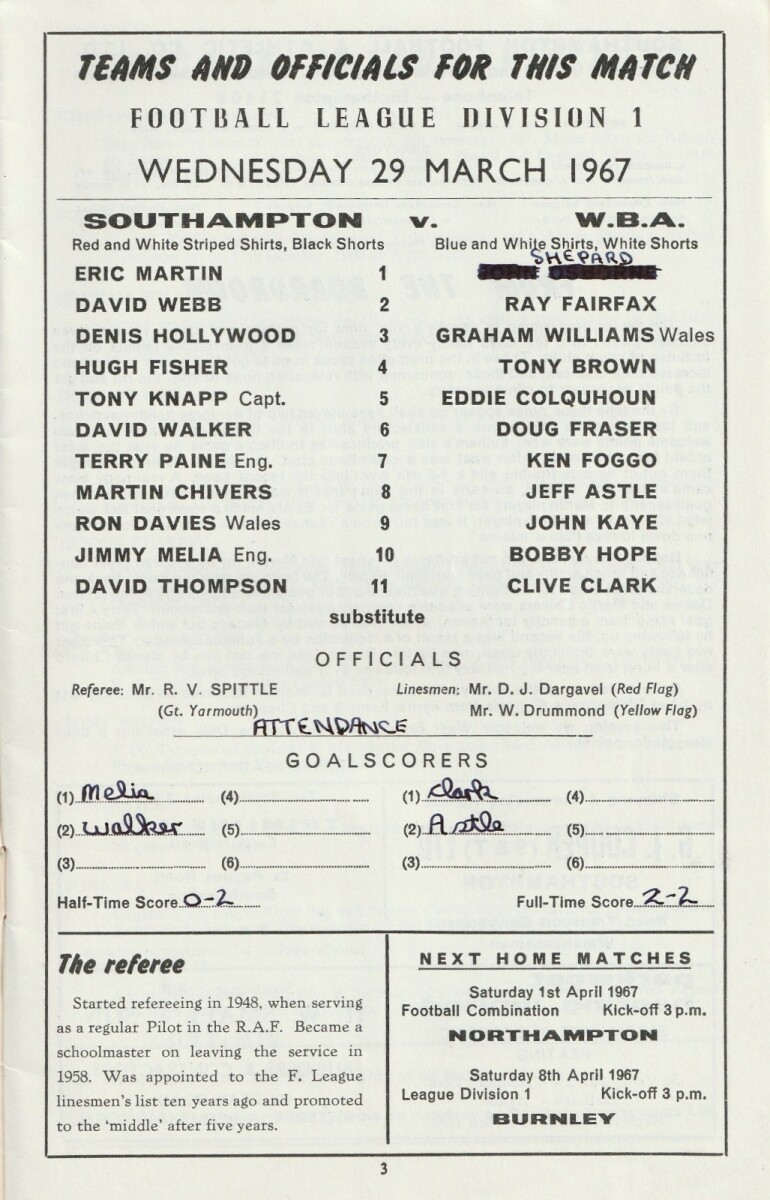 TEAMS AND OFFICIALS FOR THIS MATCH
FOOTBALL LEAGUE DIVISION 1
WEDNESDAY 29 MARCH 1967
SOUTHAMPTON v. W.B.A.
Red and White Striped Shirts, Black Shorts Blue and White Shirts, White Shorts
SHEPARD
ERIC MARTIN 1 JOHN OSBORNE
DAVID WEBB 2 RAY FAIRFAX
DENIS HOLLYWOOD 3 GRAHAM WILLIAMS Wales
HUGH FISHER 4 TONY BROWN
TONY KNAPP Capt. 5 EDDIE COLQUHOUN
DAVID WALKER 6 DOUG FRASER
TERRY PAINE Eng. 7 KEN FOGGO
MARTIN CHIVERS 8 JEFF ASTLE
RON DAVIES Wales 9 JOHN KAYE
JIMMY MELIA Eng. 10 BOBBY HOPE
DAVID THOMPSON 11 CLIVE CLARK
substitute
OFFICIALS
Referee: Mr. R. V. SPITTLE Linesmen: Mr. D. J. Dargavel (Red Flag)
(Gt. Yarmouth) Mr. W. Drummond (Yellow Flag)
ATTENDANCE
GOALSCORERS
(1) Melia (4) (1) Clark (4)
(2) Walker (5) (2) Astle (5)
(3) (6) (3) (6)
Half-Time Score 0-2 Full-Time Score 2-2
The referee
Started refereeing in 1948, when serving
as a regular Pilot in the R.A.F. Became a
schoolmaster on leaving the service in
1958. Was appointed to the F. League
linesmen's list ten years ago and promoted
to the 'middle' after five years.
NEXT HOME MATCHES
Saturday 1st April 1967
Football Combination Kick-off 3 p.m.
NORTHAMPTON
Saturday 8th April 1967
League Division 1 Kick-off 3 p.m.
BURNLEY
3